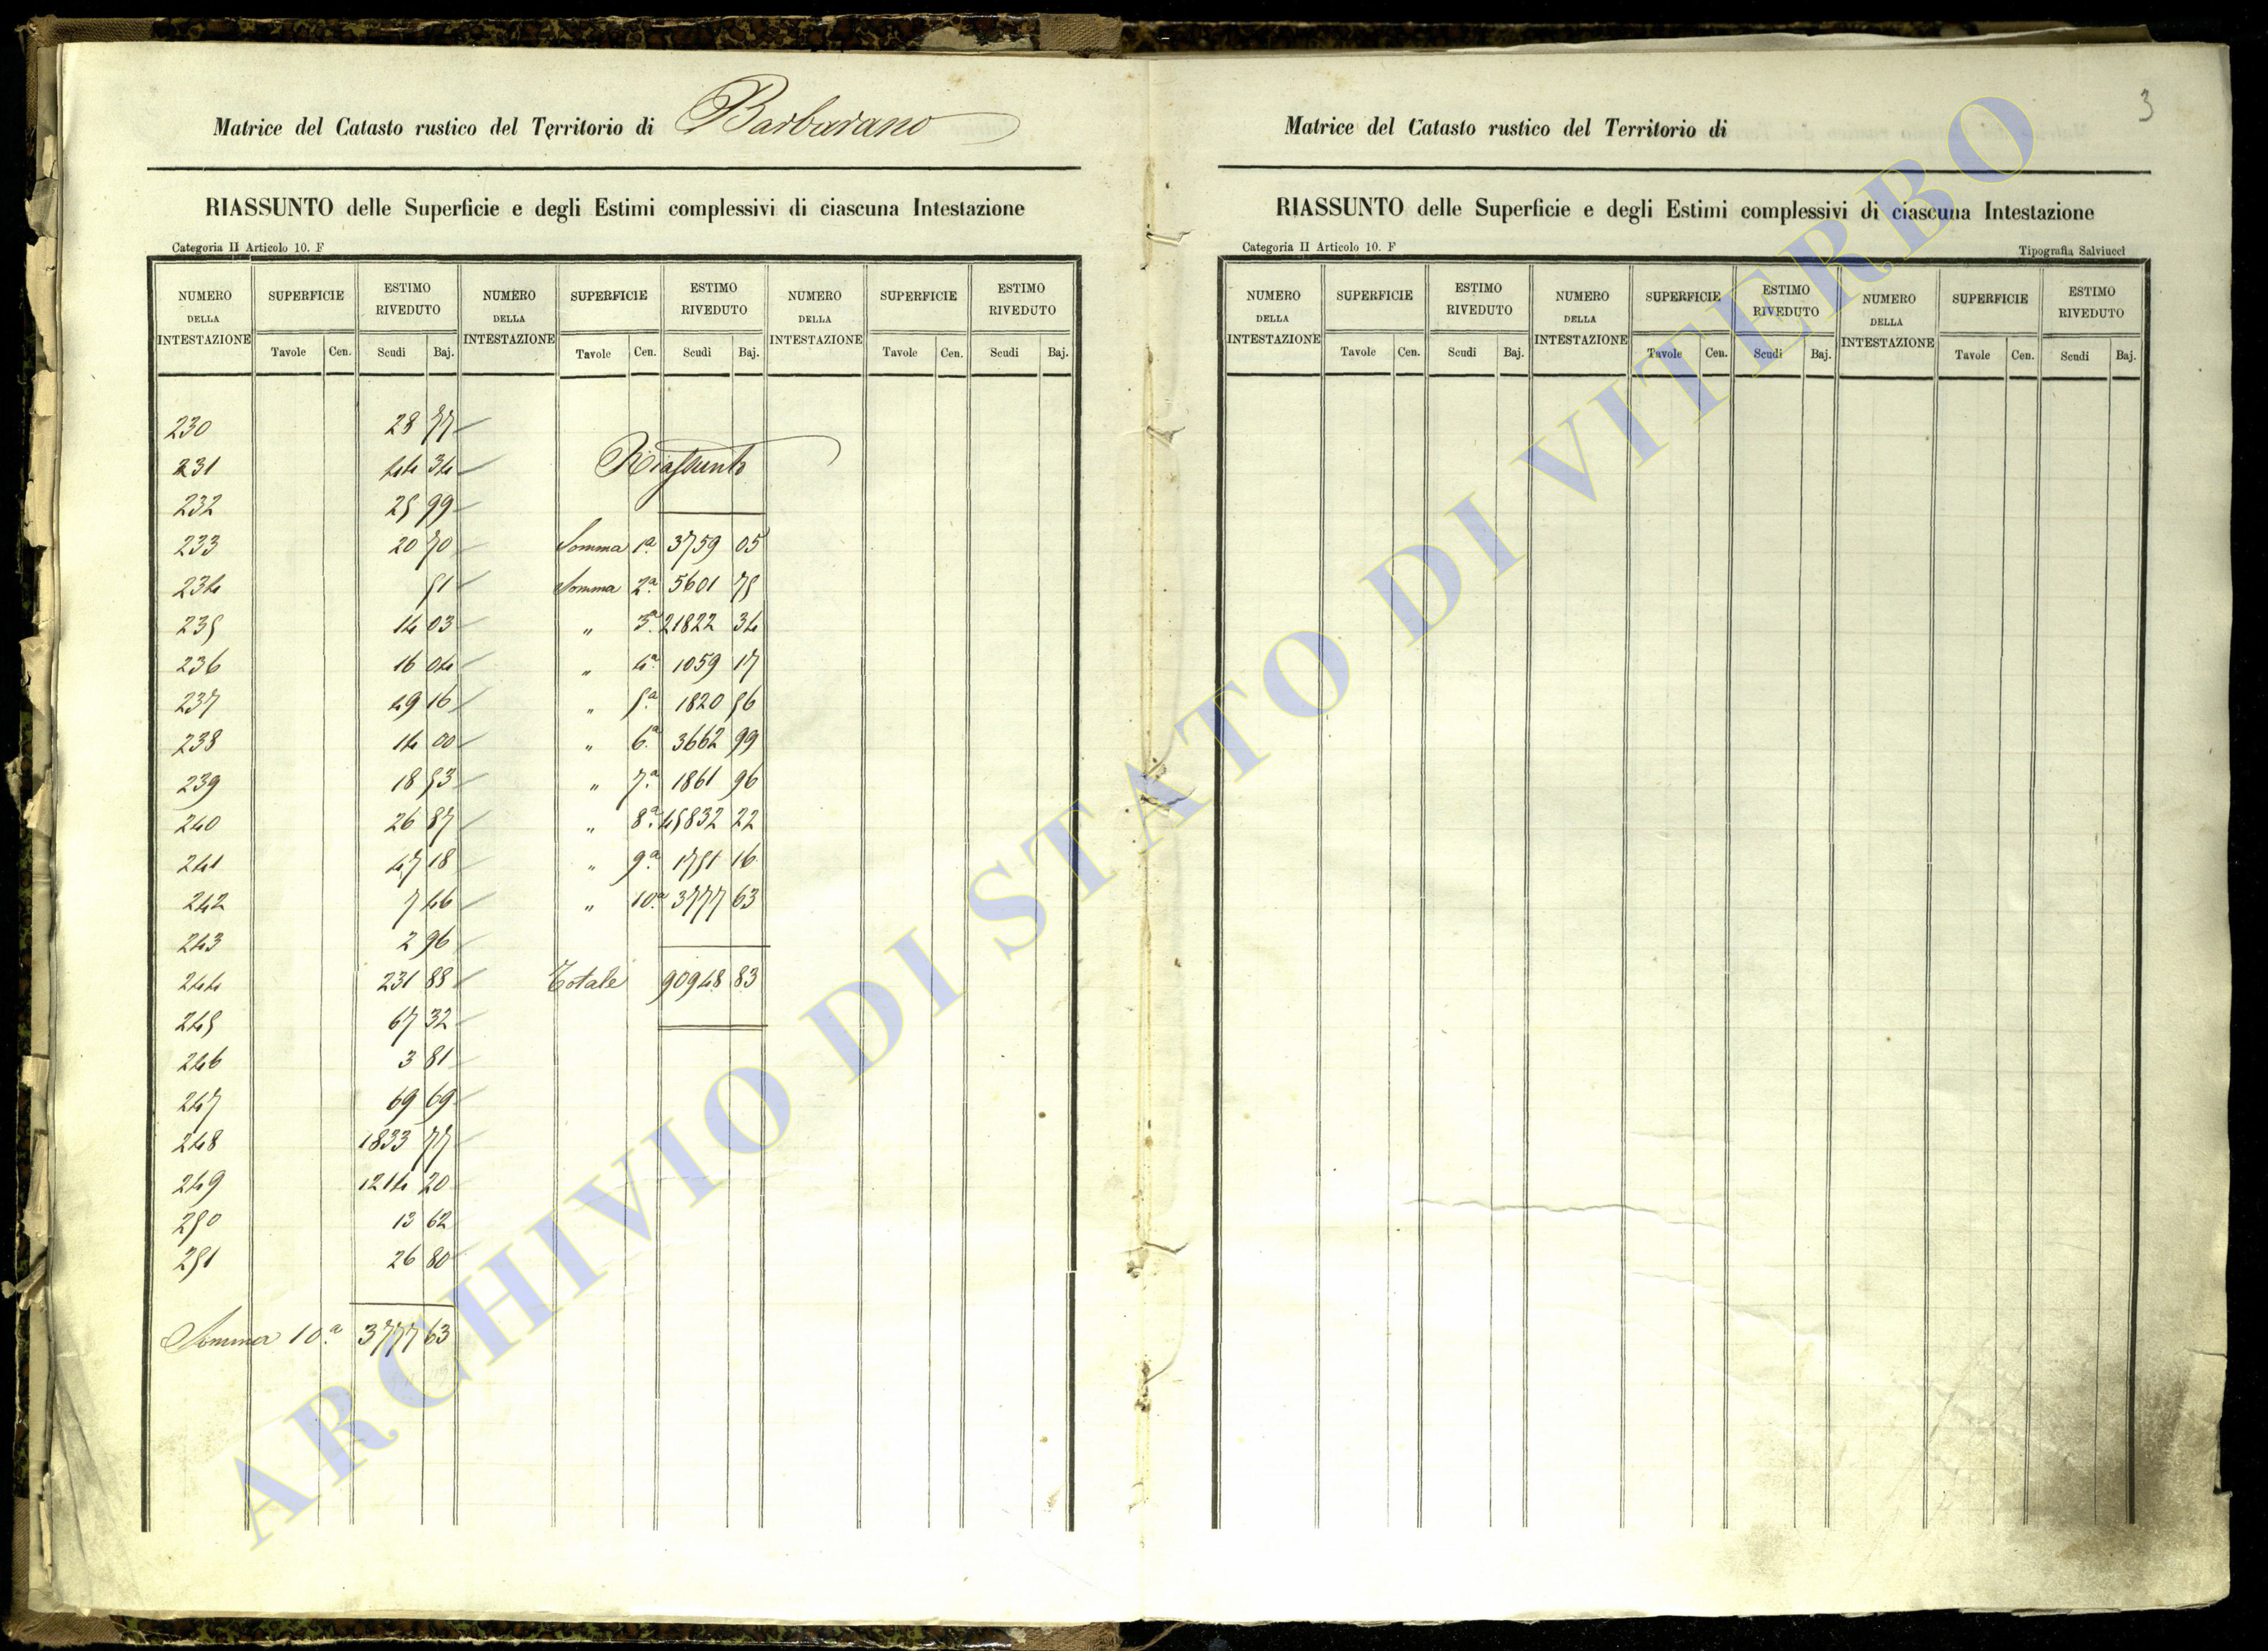 Matrice del Catasto rustico del Territorio di Barbarano
RIASSUNTO delle Superficie e degli Estimi complessivi di ciascuna Intestazione
Categoria II Articolo 10. F
NUMERO DELLA INTESTAZIONE SUPERFICIE ESTIMO RIVEDUTO NUMERO DELLA INTESTAZIONE SUPERFICIE ESTIMO RIVEDUTO NUMERO DELLA INTESTAZIONE SUPERFICIE ESTIMO RIVEDUTO
Tavole Cen. Scudi Baj. Tavole Cen. Scudi Baj. Tavole Cen. Scudi Baj.
230 28 77
231 44 34
232 25 99
233 20 70
234 51
235 14 03
236 16 04
237 49 16
238 14 00
239 18 53
240 26 87
241 47 18
242 7 46
243 2 96
244 231 88
245 67 32
246 3 81
247 69 69
248 1833 77
249 1214 20
250 13 62
251 26 80
Somma 10.a 3777 63
Riassunto
Somma 1.a 3759 05
Somma 2.a 5601 75
" 3.a 21822 34
" 4.a 1059 17
" 5.a 1820 56
" 6.a 3662 99
" 7.a 1861 96
" 8.a 45832 22
" 9.a 1751 16
" 10.a 3777 63
Totale 90948 83
3
Matrice del Catasto rustico del Territorio di
RIASSUNTO delle Superficie e degli Estimi complessivi di ciascuna Intestazione
Categoria II Articolo 10. F
Tipografia Salviucci
NUMERO DELLA INTESTAZIONE SUPERFICIE ESTIMO RIVEDUTO NUMERO DELLA INTESTAZIONE SUPERFICIE ESTIMO RIVEDUTO NUMERO DELLA INTESTAZIONE SUPERFICIE ESTIMO RIVEDUTO
Tavole Cen. Scudi Baj. Tavole Cen. Scudi Baj. Tavole Cen. Scudi Baj.
ARCHIVIO DI STATO DI VITERBO